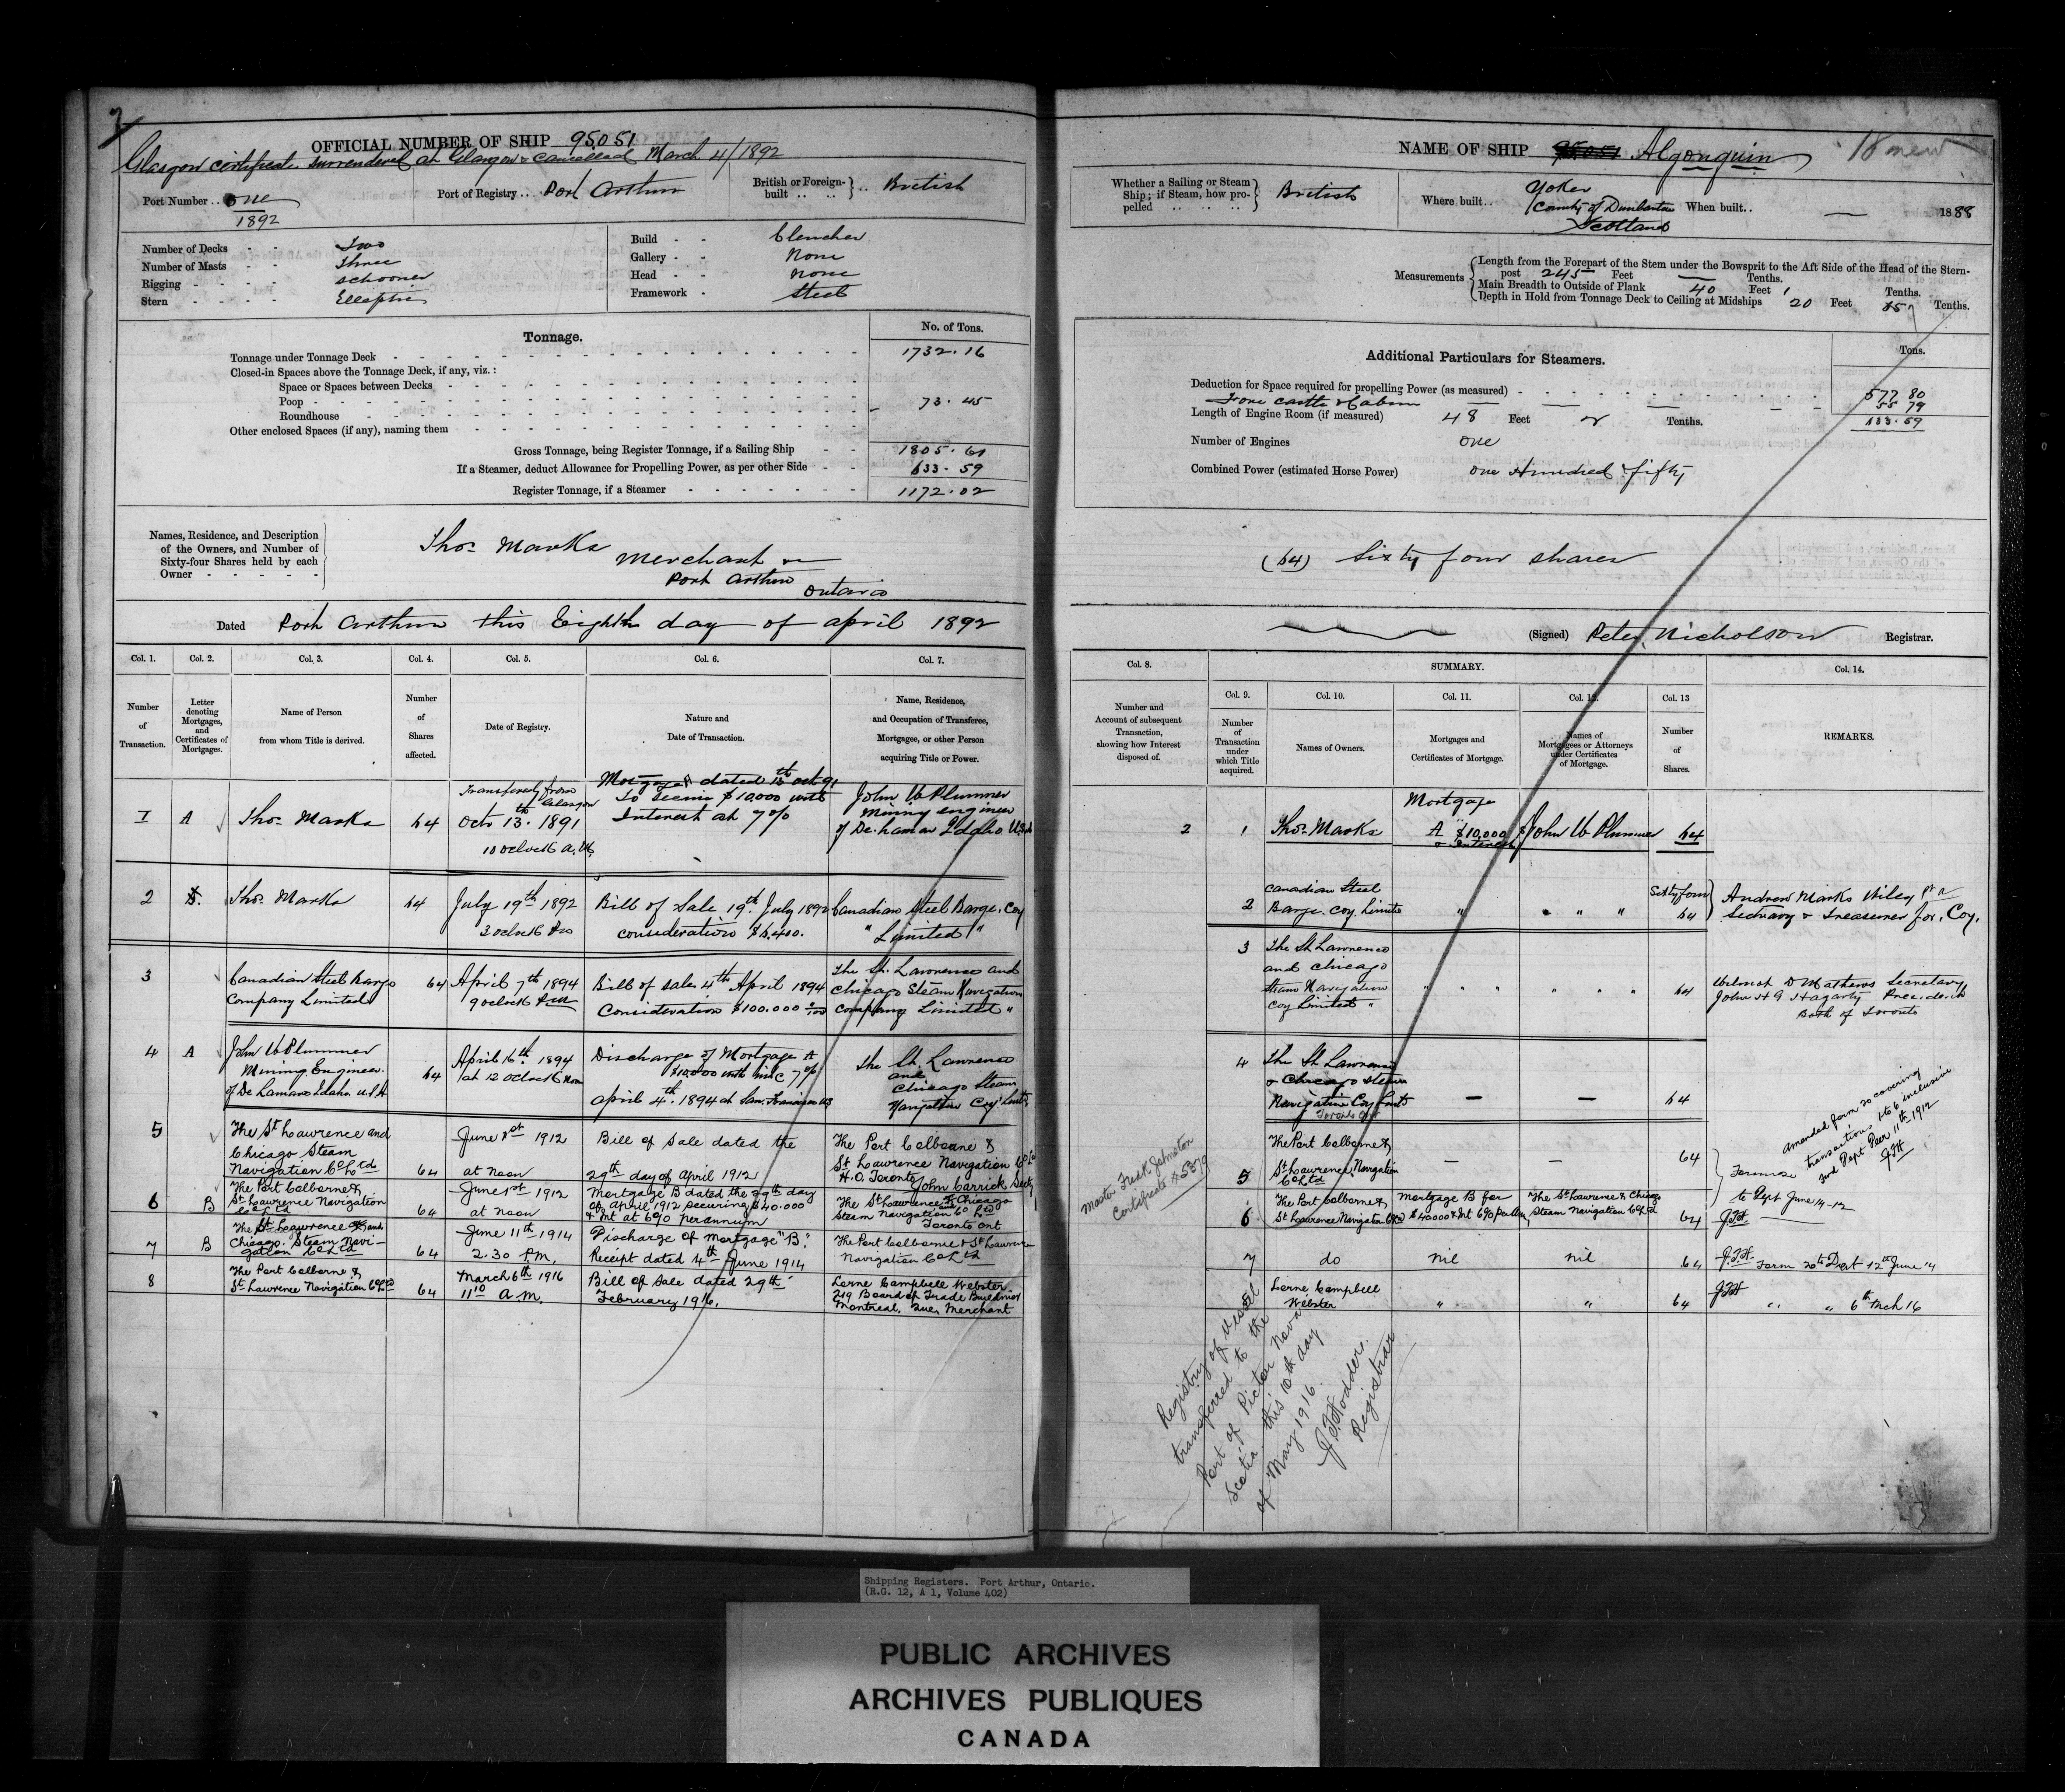 2
OFFICIAL NUMBER OF SHIP 95051
Glasgow certificate surrendered at Glasgow & cancelled March 4/1892
Port Number .. One
1892
Port of Registry .. Port Arthur
British or Foreign-built .. .. } .. British
Number of Decks - - Two
Number of Masts - - Three
Rigging - - - - Schooner
Stern - - - -
Build - - Clencher
Gallery - - None
Head - - None
Framework - Steel
Tonnage.
No. of Tons.
Tonnage under Tonnage Deck 1732.16
Closed-in Spaces above the Tonnage Deck, if any, viz.:
Space or Spaces between Decks
Poop 73.45
Roundhouse
Other enclosed Spaces (if any), naming them
Gross Tonnage, being Register Tonnage, if a Sailing Ship 1805.61
If a Steamer, deduct Allowance for Propelling Power, as per other Side 633.59
Register Tonnage, if a Steamer 1172.02
Names, Residence, and Description
of the Owners, and Number of
Sixty-four Shares held by each
Owner - - - - -
Thos Marks
Merchant
Port Arthur
Ontario
Dated Port Arthur this Eighth day of April 1892
Col. 1. Col. 2. Col. 3. Col. 4. Col. 5. Col. 6. Col. 7.
Number of Transaction.
Letter denoting Mortgages, and Certificates of Mortgages.
Name of Person from whom Title is derived.
Number of Shares affected.
Date of Registry.
Nature and Date of Transaction.
Name, Residence, and Occupation of Transferee, Mortgagee, or other Person acquiring Title or Power.
1 A Thos Marks 64
Transferred from Glasgow
Octo 13th 1891
10 oclock A.M.
Mortgage A dated 13th Oct 91
To secure $10,000 with
Interest at 7%
John W Plummer
Mining engineer
of De Lamar Idaho U.S.A
2 Thos Marks 64
July 19th 1892
3 oclock
Bill of Sale 19th July 1892
consideration
Canadian Steel Barge. Coy
" Limited "
3 Canadian Steel Barge
Company Limited
64
April 7th 1894
9 oclock
Bill of sale 4th April 1894
Consideration $100.000
The St. Lawrence and
Chicago Steam Navigation
Company Limited "
4 A John W Plummer
Mining Engineer
of De Lamar Idaho. U.S.A
64
April 16th 1894
at 12 Oclock Noon
Discharge of Mortgage A
$10.000 with 7%
April 4th. 1894 at San. Francisco US
The St. Lawrence
and
Chicago Steam
Navigation Coy
5 The St Lawrence and
Chicago Steam
Navigation Co Ltd
64
June 1st 1912
at noon
Bill of Sale dated the
29th day of April 1912
The Port Colborne &
St Lawrence Navigation Co Ld
H.O. Toronto
John Carrick Secty
6 B The Port Colborne &
St Lawrence Navigation
Co Ltd
64
June 1st 1912
at noon
Mortgage B dated the 29th day
of April 1912 securing $40.000
& Int at 6% per annum
The St Lawrence & Chicago
Steam Navigation Co Ltd
Toronto Ont
7 B The St Lawrence and
Chicago. Steam Navi-
gation Co Ltd
64
June 11th 1914
2.30 P.M.
Discharge of Mortgage "B".
Receipt dated 4th June 1914
The Port Colborne & St Lawrence
Navigation Co Ltd
8 The Port Colborne &
St Lawrence Navigation Co Ltd
64
March 6th 1916
11 10 A.M.
Bill of Sale dated 29th
February 1916.
Lorne Campbell Webster
219 Board of Trade Building
Montreal, Que, Merchant
NAME OF SHIP Algonquin
18 new
Whether a Sailing or Steam
Ship; if Steam, how pro-
pelled } British
Where built .. Yoker
County of Dunbarton
Scotland
When built .. — 1888
Measurements
Length from the Forepart of the Stem under the Bowsprit to the Aft Side of the Head of the Stern-
post 245 Feet — Tenths.
Main Breadth to Outside of Plank 40 Feet 1 Tenths.
Depth in Hold from Tonnage Deck to Ceiling at Midships 20 Feet Tenths.
Additional Particulars for Steamers.
Tons.
Deduction for Space required for propelling Power (as measured) 577 80
Fore castle & Cabin 55 79
Length of Engine Room (if measured) 48 Feet Tenths.
633.59
Number of Engines One
Combined Power (estimated Horse Power) One Hundred & fifty
(64) Sixty four shares
(Signed) Peter Nicholson Registrar.
SUMMARY.
Col. 8. Col. 9. Col. 10. Col. 11. Col. 12. Col. 13 Col. 14.
Number and Account of subsequent Transaction, showing how Interest disposed of.
Number of Transaction under which Title acquired.
Names of Owners.
Mortgages and Certificates of Mortgage.
Names of Mortgagees or Attorneys under Certificates of Mortgage.
Number of Shares.
REMARKS.
2 1 Thos. Marks
Mortgage
A $10,000
& Interest
John W Plummer 64
2 Canadian Steel
Barge. Coy Limited
" " "
Sixty four
64
Andrew Marks Wiley
Secretary & Treasurer for. Coy.
3 The St Lawrence
and Chicago
Steam Navigation
Coy Limited "
" " " " " " 64
Wilmot D Mathews Secretary
John H G Hagarty President
Both of Toronto
4 The St Lawrence
& Chicago Steam
Navigation Coy
Toronto Ont
— — 64
5 The Port Colborne &
St Lawrence Navigation
Co Ltd
— — 64
6 The Port Colborne &
St Lawrence Navigation Co Ltd
Mortgage B for
$40000 & Int 6% per Ann
The St Lawrence & Chicago
Steam Navigation Co Ltd
64
Amended form 20 covering
transactions 1 to 6 inclusive
Dept Decr 11th 1912
JFH
to Dept June 14-12
JFH
7 do Nil Nil 64
J.F.H. Form 20 to Dept 12th June 14
8 Lorne Campbell
Webster
" " 64
JFH " " 6th Mch 16
Master Fredk Johnston
Certificate # 5379
Registry of Vessel
transferred to the
Port of Pictou Nova
Scotia this 10th day
of May 1916.
J F Hodder.
Registrar
Shipping Registers. Port Arthur, Ontario.
(R.G. 12, A 1, Volume 402)
PUBLIC ARCHIVES
ARCHIVES PUBLIQUES
CANADA